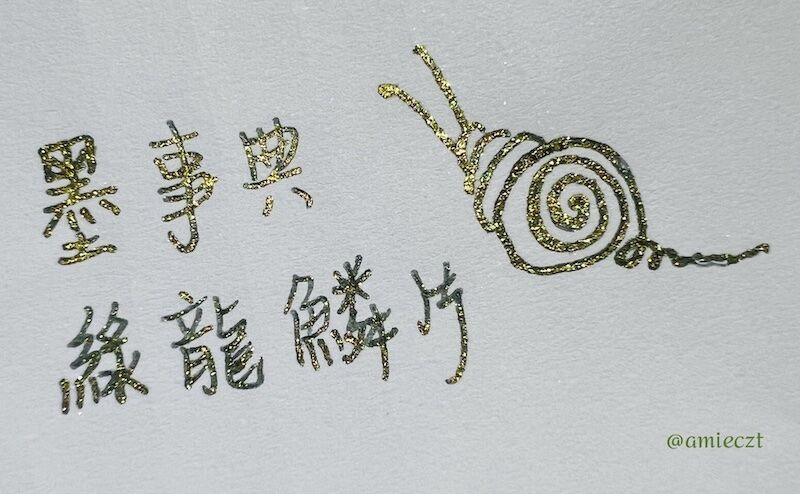 墨事典
綠龍鱗片
@amieczt